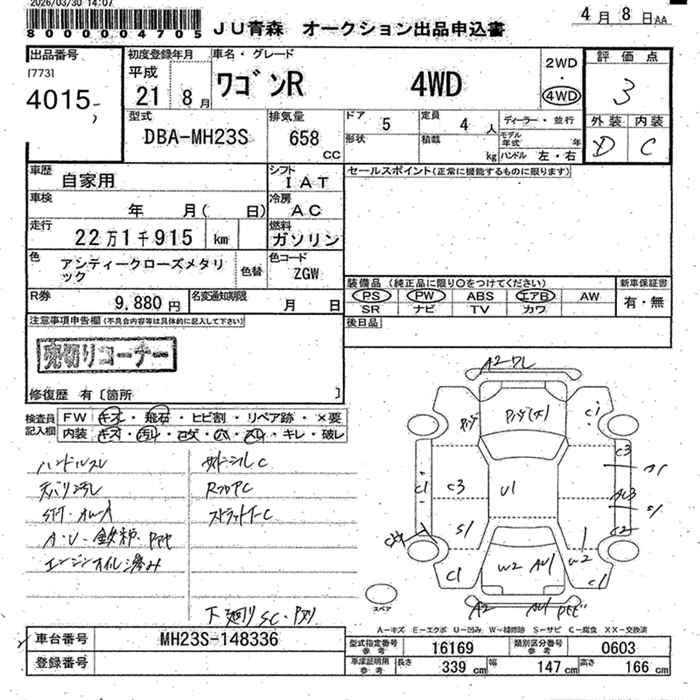 2026/03/30 14:07
8000004705
JU青森 オークション出品申込書
4月8日AA
出品番号
[773]
4015
初度登録年月
平成
21 8月
車名・グレード
ワゴンR 4WD
2WD
・
4WD
評価点
3
外装 内装
D C
型式
DBA-MH23S
排気量
658
cc
ドア 5
定員 4人
形状
積載 kg
ディーラー・並行
モデル年式 年
ハンドル 左・右
車歴
自家用
シフト
IAT
セールスポイント(正常に機能するものに限ります)
車検
年 月( 日)
冷房
AC
走行
22万1千915 km
燃料
ガソリン
色
アンティークローズメタリック
色替
色コード
ZGW
装備品 (純正品に限り○をつけてください)
PS PW ABS エアB AW
SR ナビ TV カワ
新車保証書
有・無
R券
9,880円
名変通知期限
月 日
後日品
注意事項申告欄(不具合内容等は具体的に記入して下さい)
売切りコーナー
修復歴 有〔箇所 〕
検査員記入欄
FW キズ・飛石・ヒビ割・リペア跡・×要
内装 キズ・汚れ・コゲ・穴・スレ・キレ・破レ
ハンドルスレ
天バリ汚れ
A2ワレ
C1
C3
A1
S1
C3
C1
U1
S1
C2
W2
W2
A1
C1
C1
A2
スペア
下廻りSC・
A-キズ E-エクボ U-凹み W-補修跡 S-サビ C-腐食 XX-交換済
車台番号
MH23S-148336
登録番号
型式指定番号
参考
16169
類別区分番号
参考
0603
車庫証明用
参考
長さ 339cm
幅 147cm
高さ 166cm